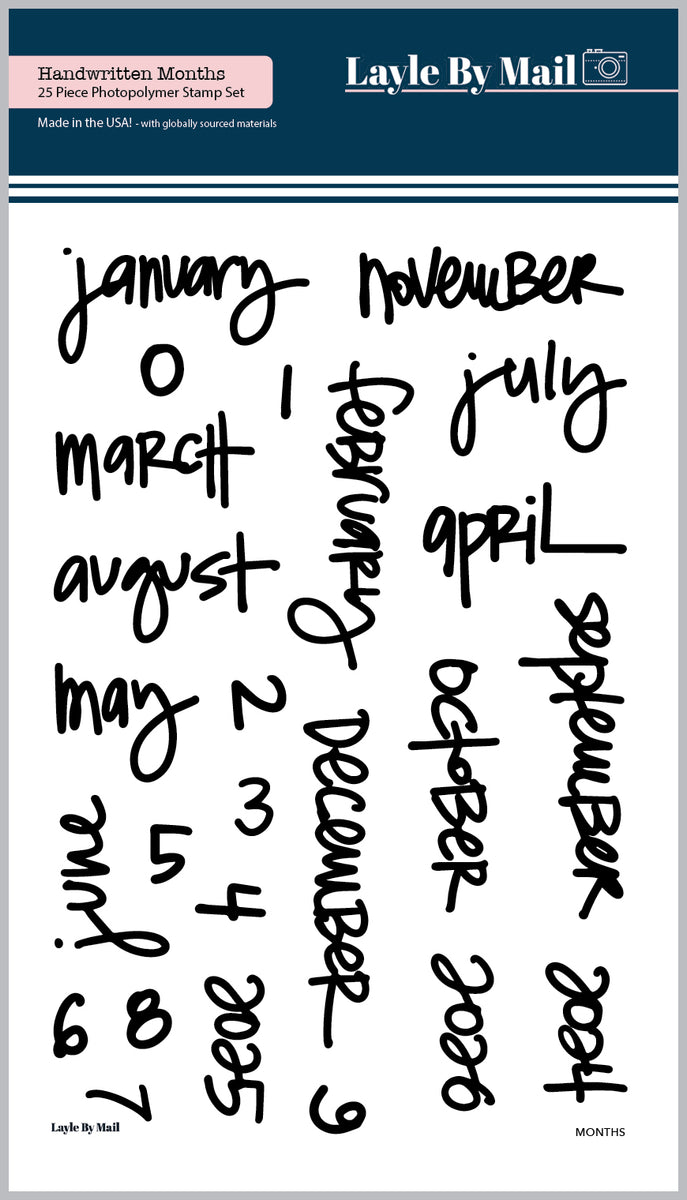 Handwritten Months
25 Piece Photopolymer Stamp Set
Made in the USA! - with globally sourced materials
Layle By Mail
january
november
0
1
july
february
march
april
august
september
may
2
october
december
3
june
5
4
2025
2026
2024
6
8
7
9
Layle By Mail
MONTHS